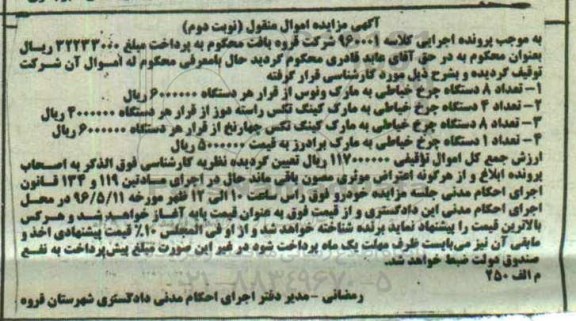 آگهی مزایده اموال منقول (نوبت دوم)
به موجب پرونده اجرایی کلاسه 960001 شرکت قروه بافت محکوم به پرداخت مبلغ 32233000 ریال
بعنوان محکوم به در حق آقای عابد قادری محکوم گردید حال بامعرفی محکوم له اموال آن شرکت
توقیف گردیده و بشرح ذیل مورد کارشناسی قرار گرفته
1- تعداد 8 دستگاه چرخ خیاطی به مارک ونوس از قرار هر دستگاه 6000000 ریال
2- تعداد 4 دستگاه چرخ خیاطی به مارک کینگ تکس راسته دوز از قرار هر دستگاه 4000000 ریال
3- تعداد 8 دستگاه چرخ خیاطی به مارک کینگ تکس چهارنخ از قرار هر دستگاه 6000000 ریال
4- تعداد 1 دستگاه چرخ خیاطی به مارک برادرز به قیمت 5000000 ریال
ارزش جمع کل اموال توقیفی 117000000 ریال تعیین گردیده نظریه کارشناسی فوق الذکر به اصحاب
پرونده ابلاغ و از هرگونه اعتراض موثری مصون باقی ماند حال در اجرای مادتین 119 و 134 قانون
اجرای احکام مدنی جلسه مزایده خودرو فوق راس ساعت 10 الی 12 ظهر مورخه 96/5/11 در محل
اجرای احکام مدنی این دادگستری و از قیمت فوق به عنوان قیمت پایه آغاز خواهد شد و هرکس
بالاترین قیمت را پیشنهاد نماید برنده شناخته خواهد شد و از او فی المجلس 10% قیمت پیشنهادی اخذ و
مابقی آن نیز می‌بایست ظرف مهلت یک ماه پرداخت شود در غیر این صورت مبلغ پیش‌پرداخت به نفع
صندوق دولت ضبط خواهد شد.
م الف 450
رمضانی - مدیر دفتر اجرای احکام مدنی دادگستری شهرستان قروه
021-88349670-5